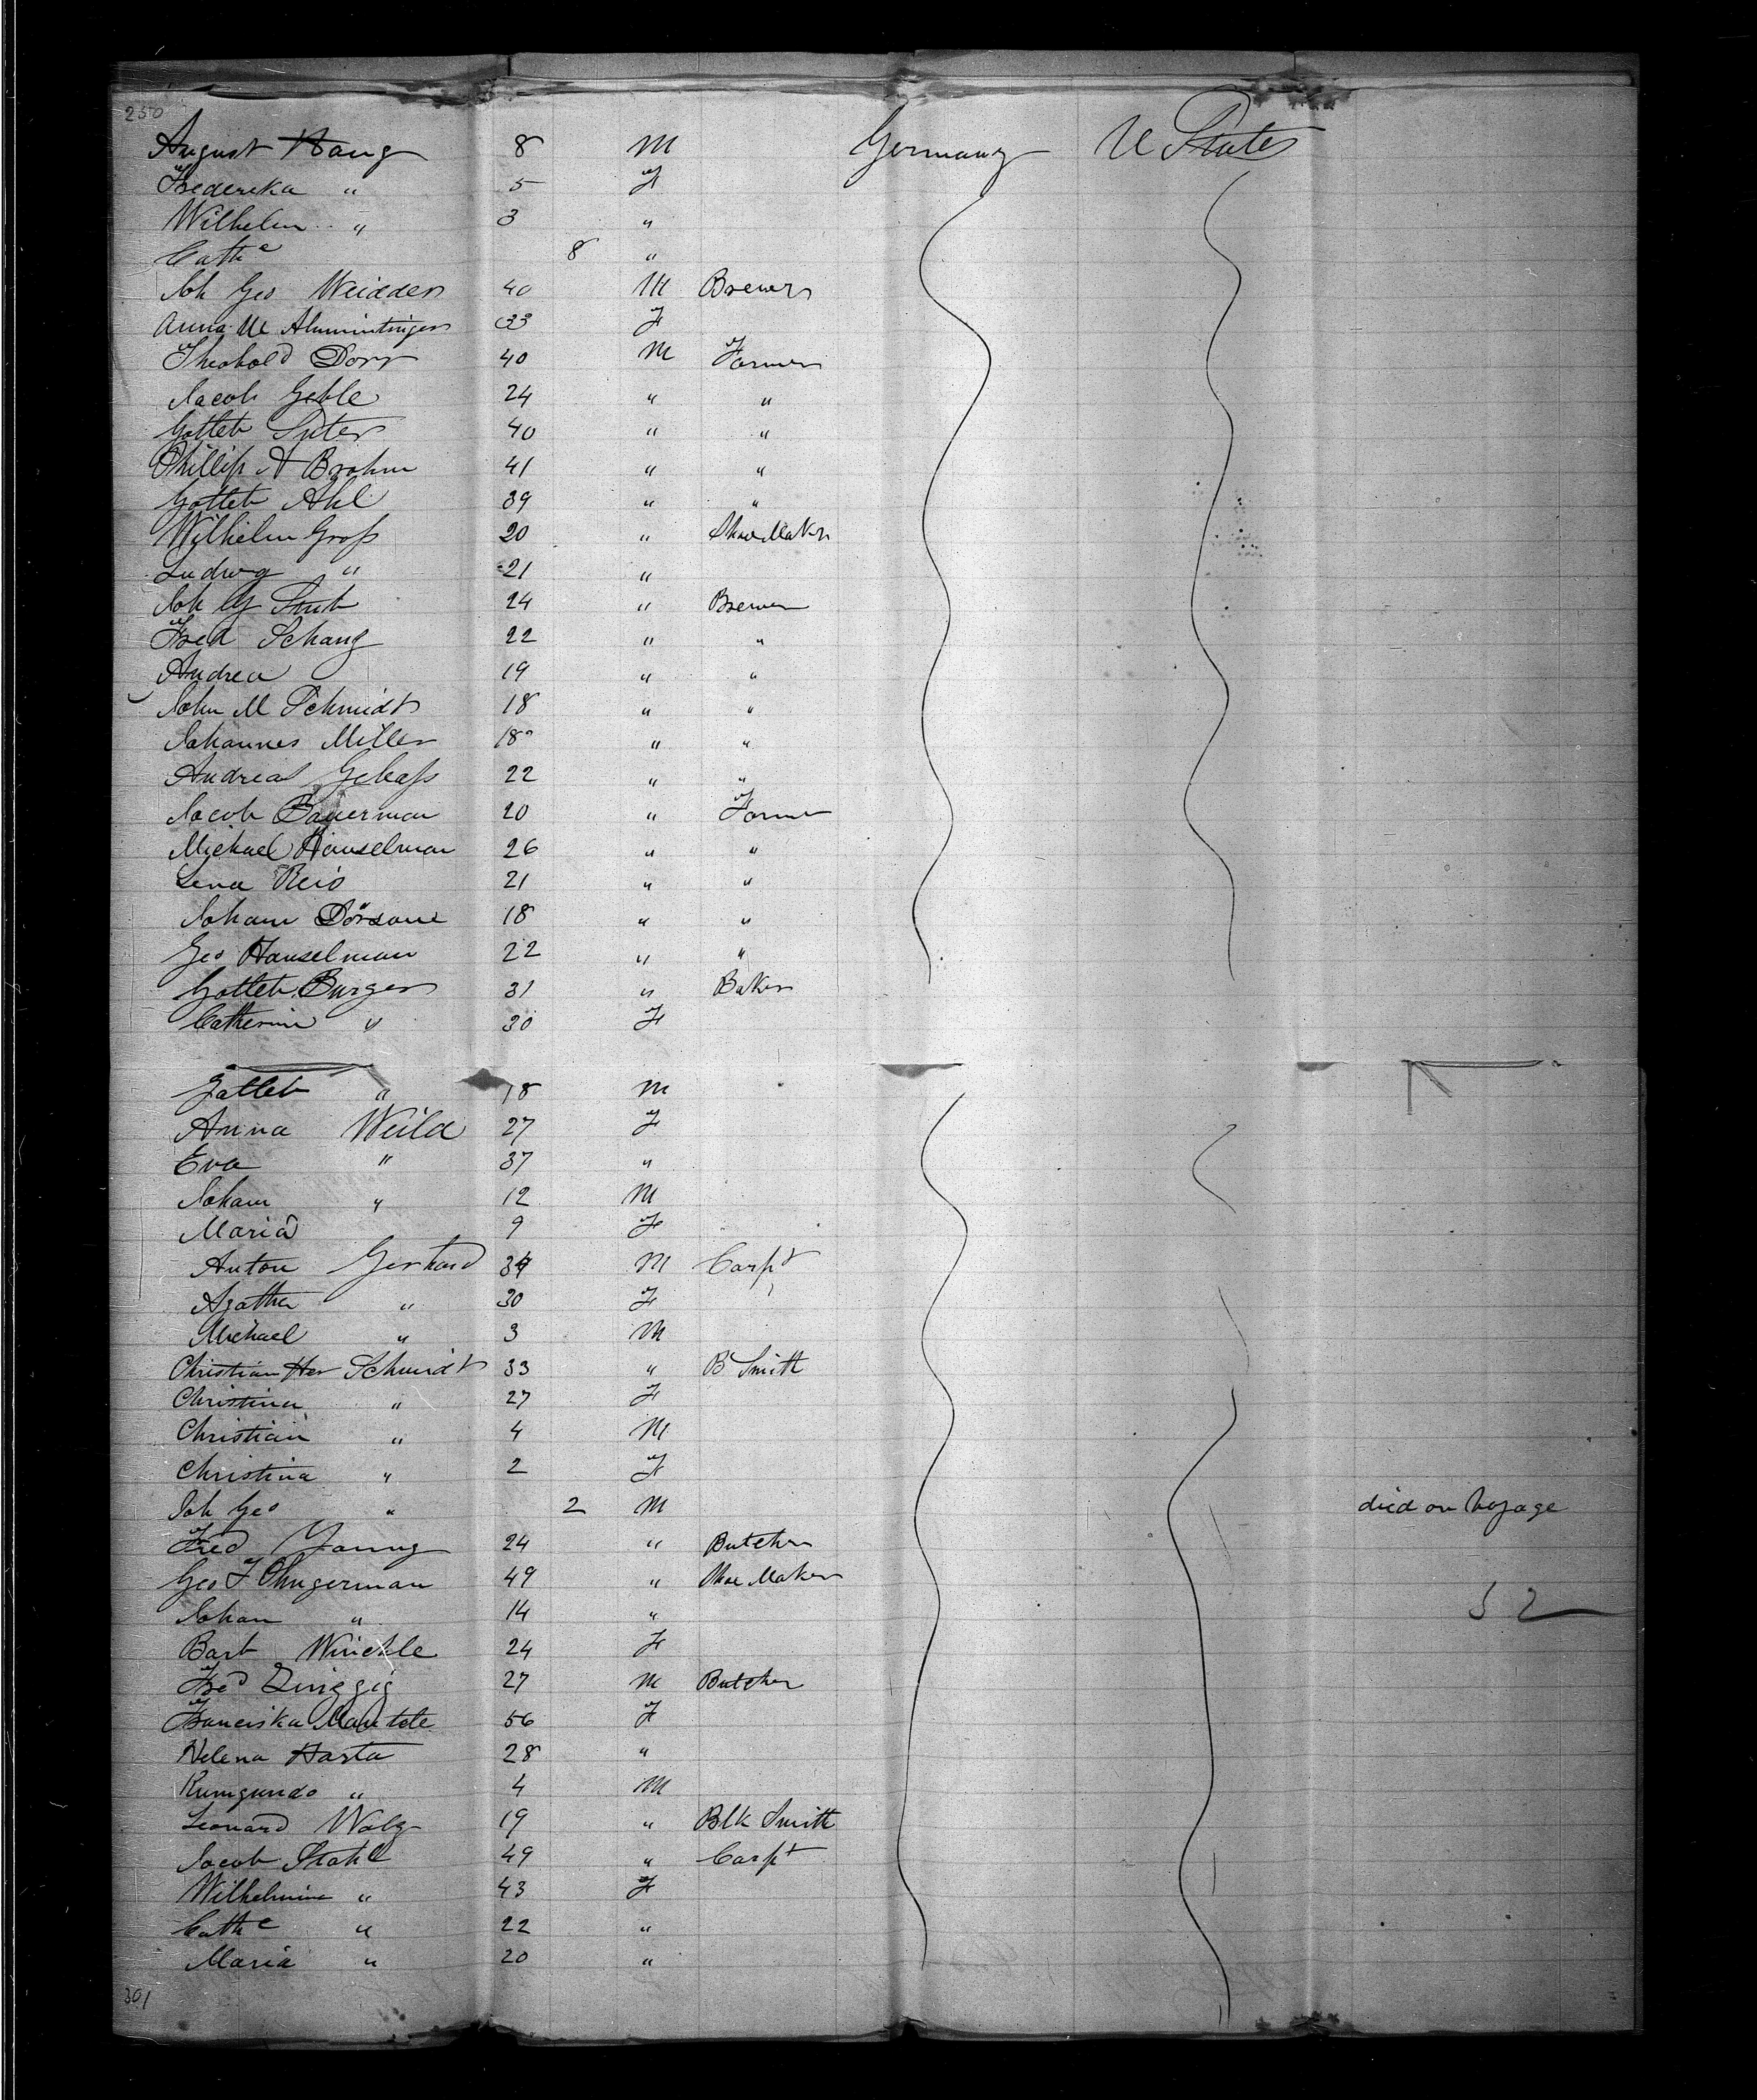 250
August Haug 8 M Germany U States
Frederika " 5 F
Wilhelm " 3 "
Cathe 8 "
Joh Geo Weidder 40 M Brewer
Anna M 33 F
Theobold Dorr 40 M Farmer
Jacob Geble 24 " "
Gotleb Suter 40 " "
Phillip A Brohm 41 " "
Gotleb Ahl 39 " "
Wilhelm Groß 20 " Shoe Maker
Ludwig " 21 "
Joh G Stub 24 " Brewer
Fred Schang 22 " "
Andrea 19 " "
John M Schmidt 18 " "
Johannes Miller 18 " "
Andreas Gebaß 22 " "
Jacob Bauerman 20 " Farmer
Michael Hanselman 26 " "
Lena Reis 21 " "
Joham Dörsame 18 " "
Geo Hanselman 22 " "
Gotleb Burger 31 " Baker
Catherine " 30 F
Gotleb " 18 M
Anna Weild 27 F
Eva " 37 "
Joham " 12 M
Maria 9 F
Anton Gerhard 34 M Carpt
Agatha " 30 F
Michael " 3 M
Christian Her Schmidt 33 " B Smith
Christina " 27 F
Christian " 4 M
Christina " 2 F
Joh Geo " 2 M died on Voyage
Fred Young 24 " Butcher
Geo F Ohngerman 49 " Shoe Maker
Johan " 14 " 52
Barb Winckle 24 F
Fred Zinggig 27 M Butcher
Franciska Mantele 56 F
Helena Harta 28 "
Kumgundo " 4 M
Leonard Walz 19 " Blk Smith
Jacob Stahl 49 " Carpt
Wilhelmine " 43 F
Cathe " 22 "
Maria " 20 "
301